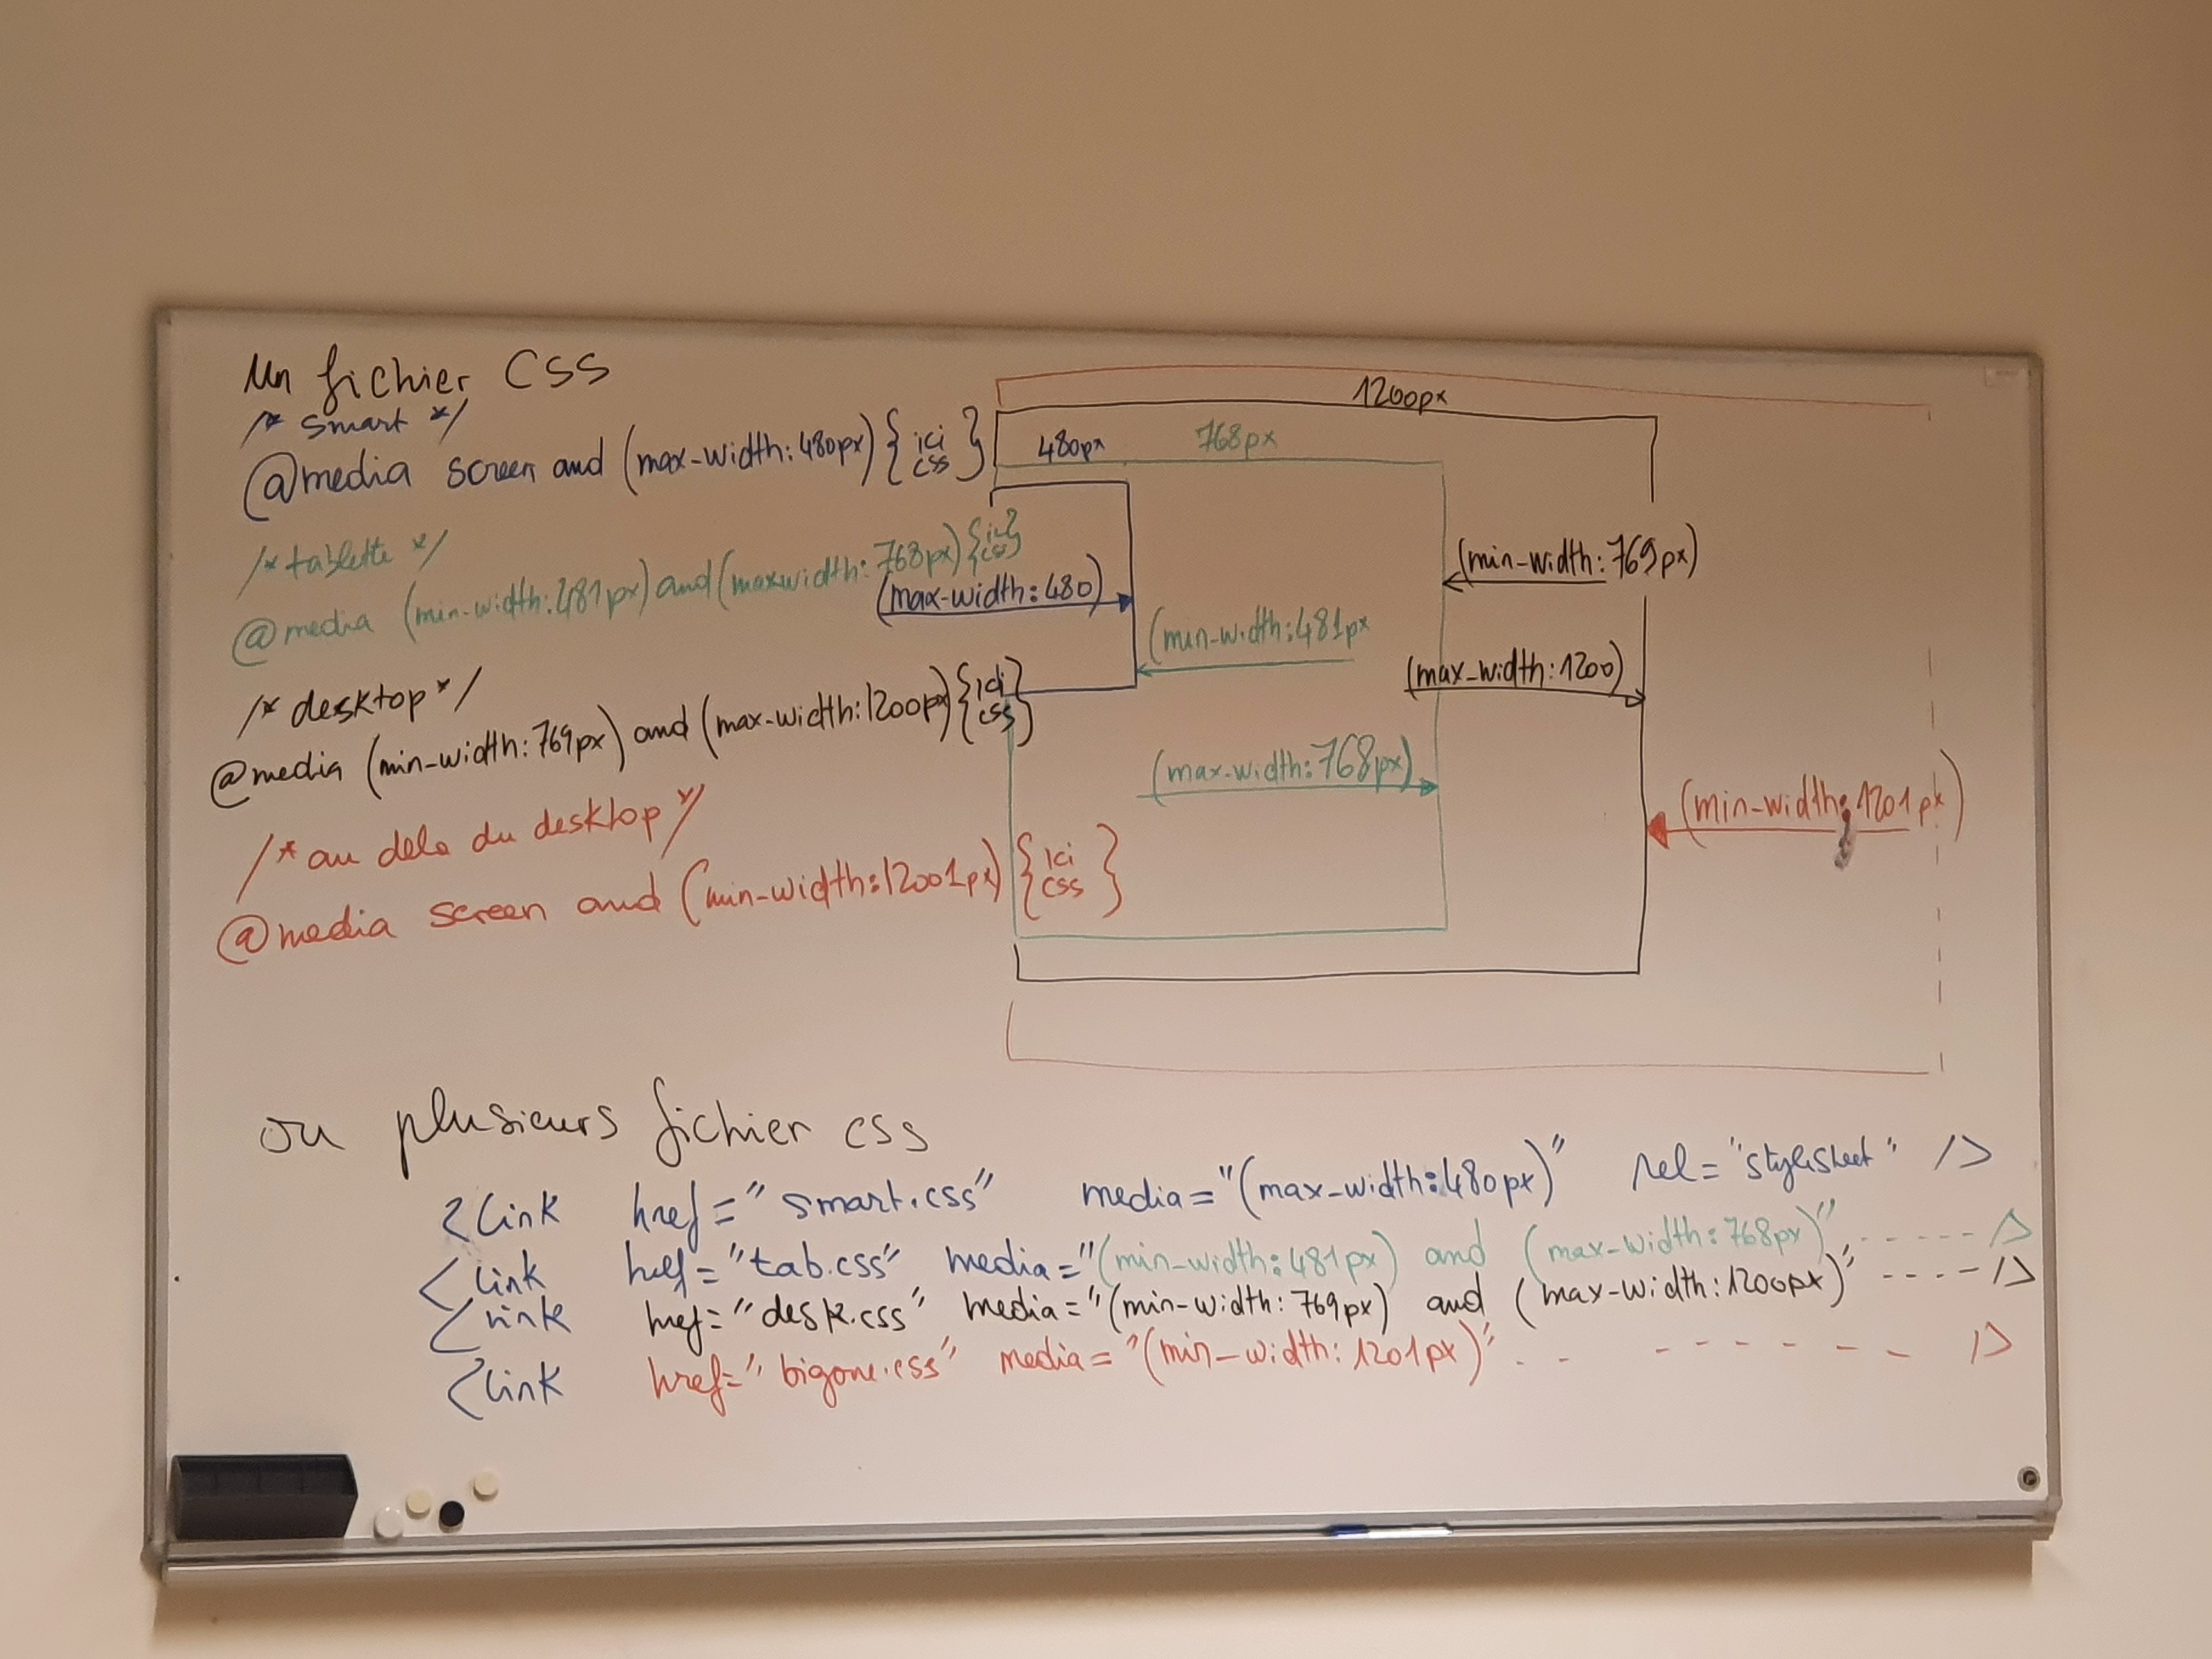 Un fichier CSS
/* smart */
@media screen and (max-width:480px) { ici css }
/* tablette */
@media (min-width:481px) and (maxwidth:768px) { ici css }
/* desktop */
@media (min-width:769px) and (max-width:1200px) { ici css }
/* au dela du desktop */
@media screen and (min-width:12001px) { ici css }
1200px
480px
768px
(min-width:769px)
(max-width:480)
(min-width:481px
(max-width:1200)
(max-width:768px)
(min-width:1201px)
ou plusieurs fichier css
<link href="smart.css" media="(max-width:480px)" rel="stylesheet" />
<link href="tab.css" media="(min-width:481px) and (max-width:768px)" ------/>
<link href="desk.css" media="(min-width:769px) and (max-width:1200px)" ----/>
<link href="bigone.css" media="(min-width:1201px)" -- ------ />